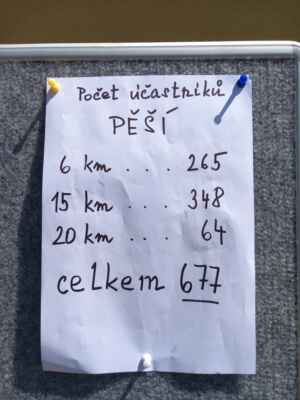 Počet účastníků
PĚŠÍ
6 km . . . 265
15 km . . . 348
20 km . . . 64
celkem 677